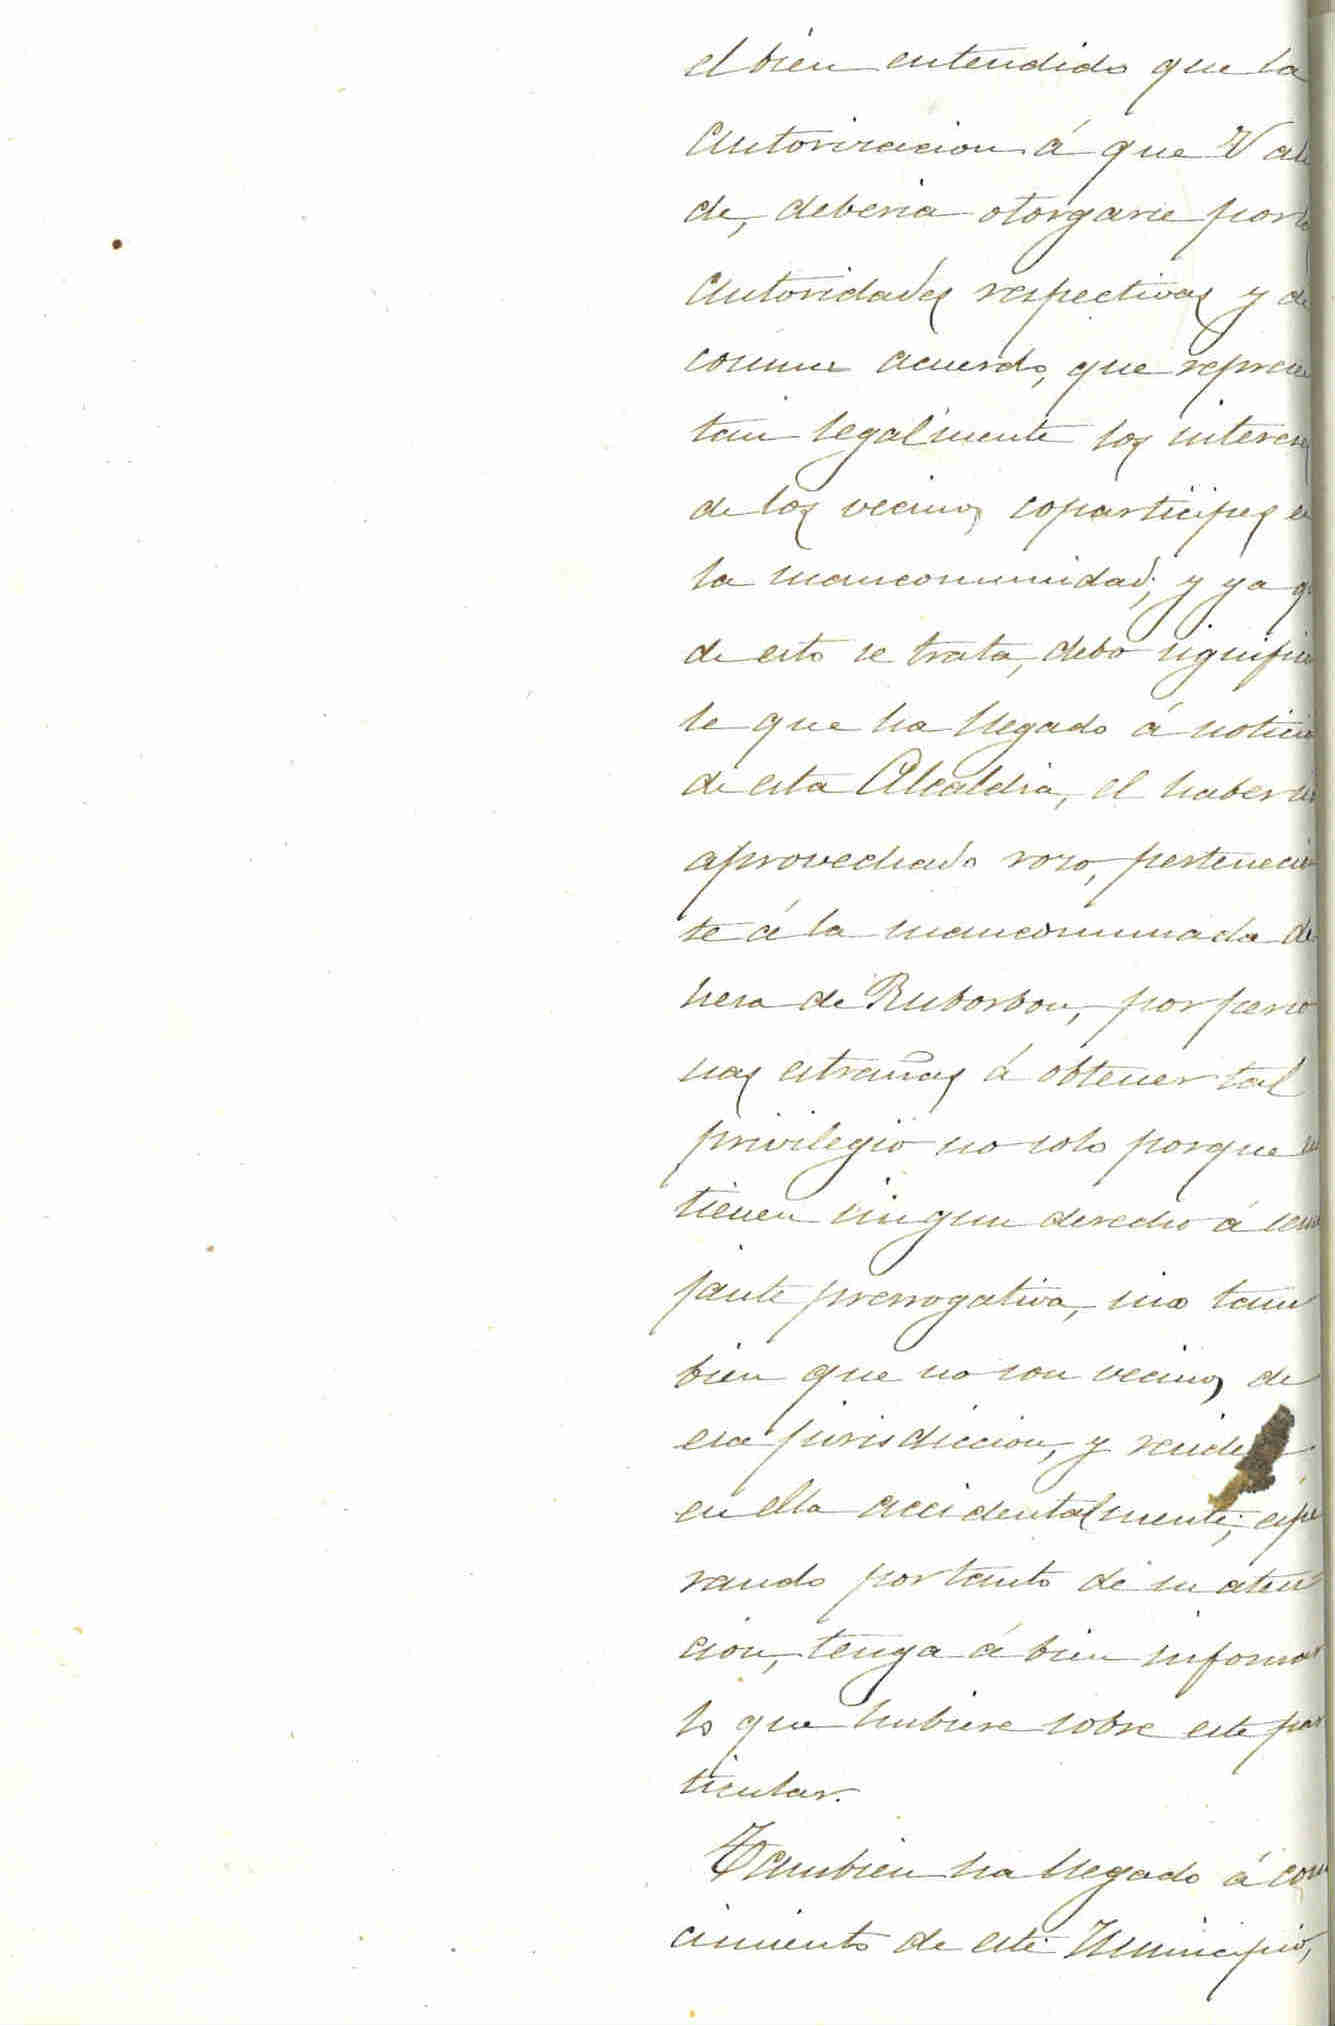 el bien entendido que la
Autorizacion á que V alu
de, deberia otorgarse por la
Autoridades respectivas y de
comun acuerdo, que represen
tan legalmente los interese
de los vecinos coparticipes en
la mancomunidad; y ya q
de esto se trata, debo significa
le que ha llegado á noticia
de esta Alcaldia, el haberse
aprovechado rozo, pertenecien
te á la mancomunada de
hesa de Ruborbon, por perso
nas estrañas á obtener tal
privilegio no solo porque no
tienen ningun derecho á seme
jante prerrogativa, sino tam
bien que no son vecinos de
esa jurisdiccion, y reside
en ella accidentalmente; espe
rando por tanto de su aten
cion, tenga á bien informar
lo que hubiese sobre este par
ticular.
Tambien ha llegado á cono
cimiento de este Municipio,